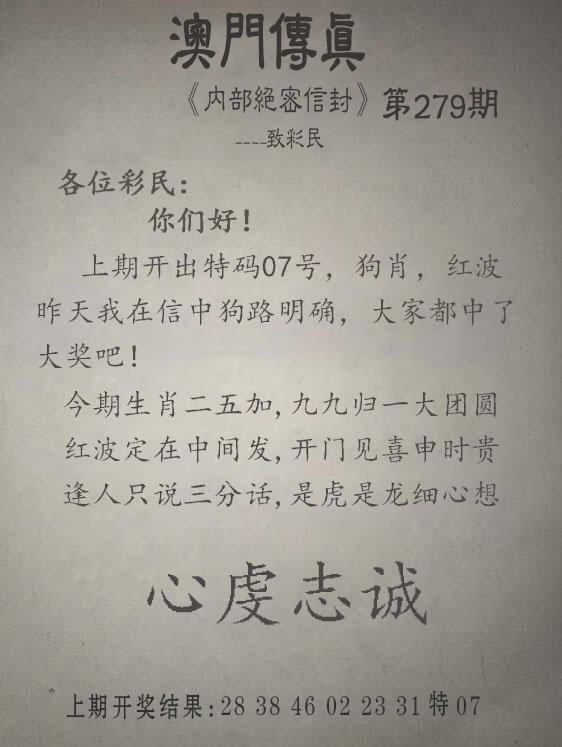 澳門傳眞
《内部絕密信封》第279期
----致彩民
各位彩民：
你们好！
上期开出特码07号，狗肖，红波
昨天我在信中狗路明确，大家都中了
大奖吧！
今期生肖二五加,九九归一大团圆
红波定在中间发,开门见喜申时贵
逢人只说三分话,是虎是龙细心想
心虔志诚
上期开奖结果:28 38 46 02 23 31 特 07